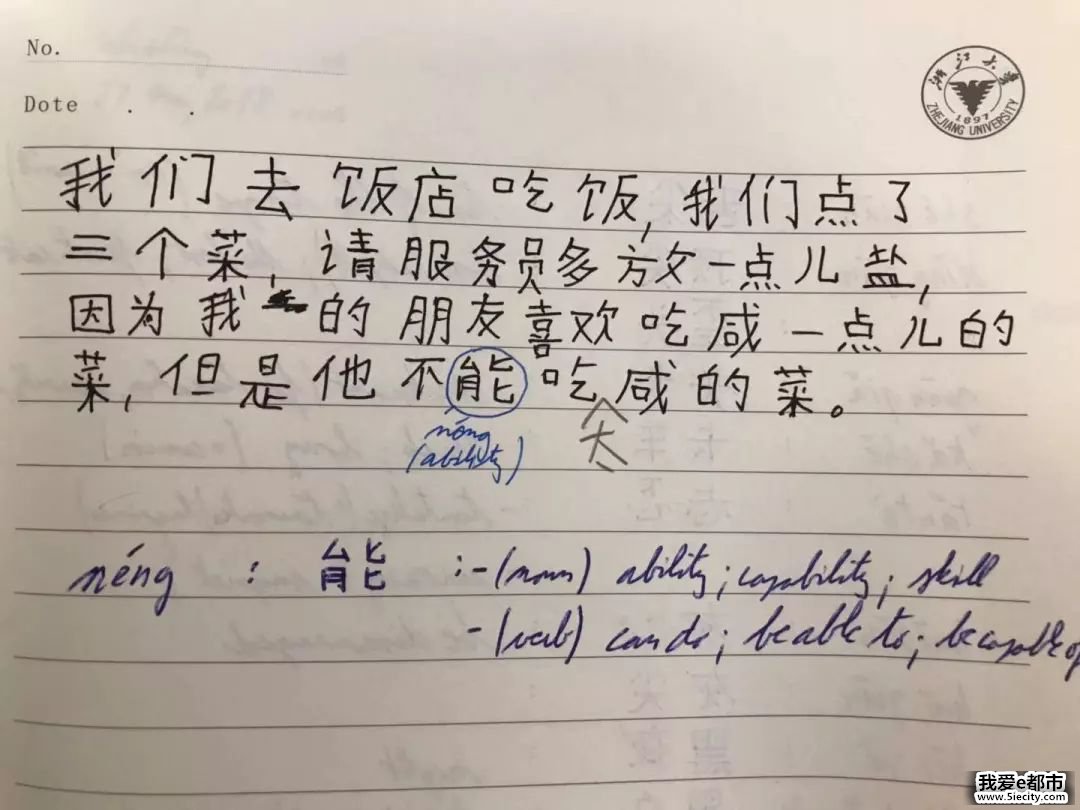 No.
Dote . .
浙江大学
ZHEJIANG UNIVERSITY
1897
我们去饭店吃饭,我们点了
三个菜,请服务员多放一点儿盐,
因为我的朋友喜欢吃咸一点儿的
菜,但是他不能吃咸的菜。
néng
(ability)
太
néng : 能 :-(noun) ability; capability; skill
-(verb) can do; be able to; be capable of
我爱e都市
www.5iecity.com